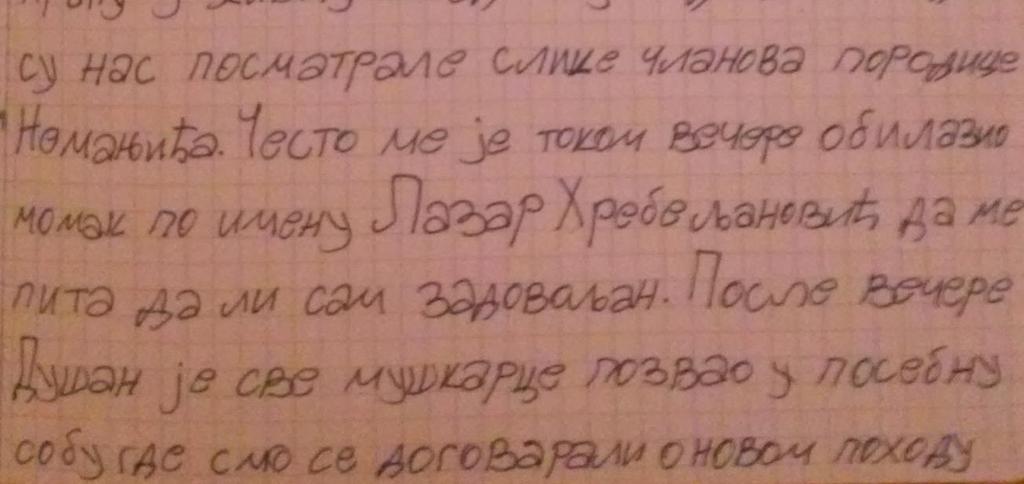 су нас посматрале слике чланова породице
Немањића. Често ме је током вечере обилазио
момак по имену Лазар Хребељановић да ме
пита да ли сам задовољан. После вечере
Душан је све мушкарце позвао у посебну
собу где смо се договарали о новом походу